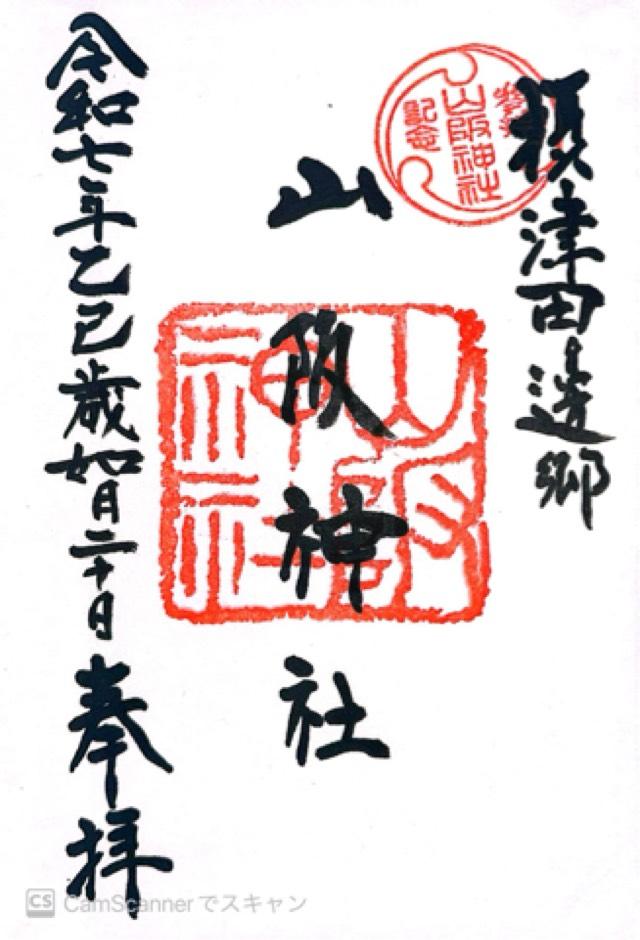 摂津田邊郷
山阪神社
記念
山阪神社
山阪神社
令和七年乙巳歳如月二十日奉拝
CS CamScannerでスキャン